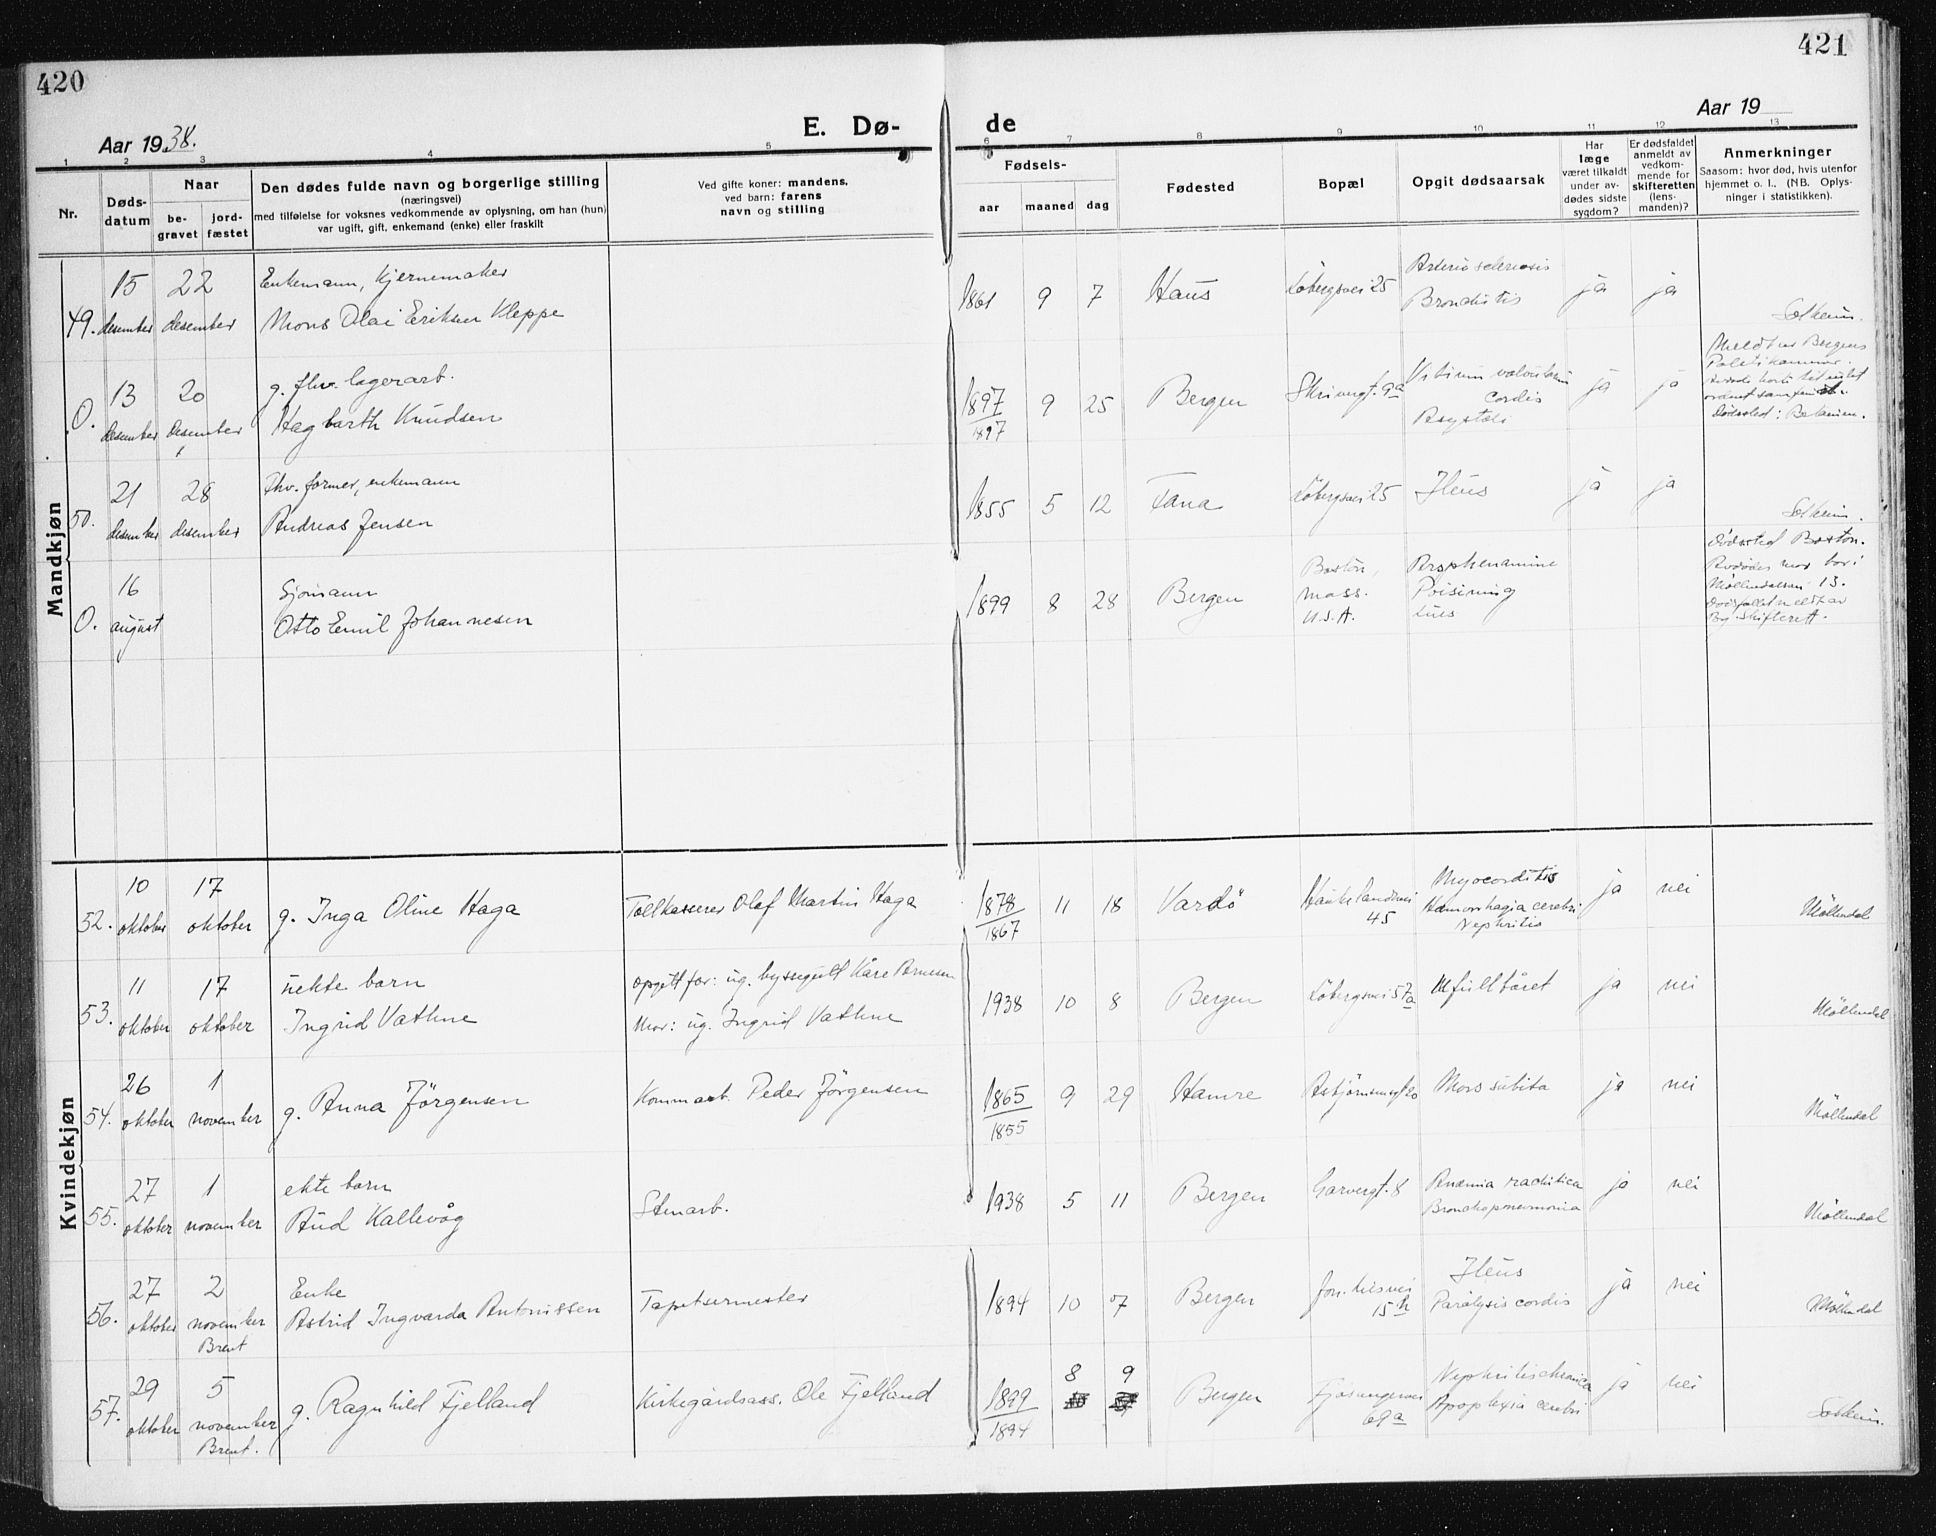 420
421
Aar 1938.
E. Dø-
de
Aar 19
1 2 3 4 5 6 7 8 9 10 11 12 13
Nr.
Døds-
datum
Naar
be-
gravet
jord-
fæstet
Den dødes fulde navn og borgerlige stilling
(næringsvei)
med tilføielse for voksnes vedkommende av oplysning, om han (hun)
var ugift, gift, enkemand (enke) eller fraskilt
Ved gifte koner: mandens,
ved barn: farens
navn og stilling
Fødsels-
aar maaned dag
Fødested
Bopæl
Opgit dødsaarsak
Har
læge
været tilkaldt
under av-
dødes sidste
sygdom?
Er dødsfaldet
anmeldt av
vedkom-
mende for
skifteretten
(lens-
manden)?
Anmerkninger
Saasom: hvor død, hvis utenfor
hjemmet o. l., (NB. Oplys-
ninger i statistikken).
Mandkjøn
15 22 Enkemann, Kjernemaker
49. desember desember Mons Olai Eriksen Kleppe
1861 9 7 Haus Løbergsvei 25
Arterio sclerosis
Bronchitis
ja ja
Solheim.
13 20 g. fhv. lagerarb.
0. desember desember Hagbarth Knudsen
1897
1897
9 25 Bergen Skivergt. 9a
Vitium valvularum
cordis
Asystoli
ja ja
Meldt av Bergens
Politikammer.
Dødssted: Betanien.
21 28 Fhv. former, enkemann
50. desember desember Andreas Jensen
1855 5 12 Fana Løbergsvei 25 Ileus ja ja
Solheim.
16 Sjømann
0. august Otto Emil Johannesen
1899 8 28 Bergen
Boston,
mass.
U.S.A.
Arsphenamine
Poisining
Lues
Dødssted Boston.
Avdødes mor bor i
Møllendalsvn. 13.
Dødsfallet meldt av
Bg. Skifterett.
Kvindekjøn
10 17
52. oktober oktober g. Inga Oline Haga Tollkasserer Olaf Martin Haga
1878
1867
11 18 Vardö
Haukelandsvei
45
Myocorditis
Hæmorrhagia cerebri
Nephritis
ja nei
Møllendal
11 17 uekte barn
53. oktober oktober Ingrid Vathne
opgitt far: ug. byssegutt Kåre Arnesen
Mor: ug. Ingrid Vathne
1938 10 8 Bergen Løbergsvei 57a Ufullbåret ja nei
Møllendal
26 1
54. oktober november g. Anna Jörgensen Kommarb. Peder Jörgensen
1865
1855
9 29 Hamre Asbjörnsensgt 20 Mors subita ja nei
Møllendal
27 1 ekte barn
55. oktober november Aud Kallevåg Stenarb.
1938 5 11 Bergen Garvergt. 8
Anæmia rachitica
Bronchopneumonia
ja nei
Møllendal
27 2 Enke
56. oktober november Astrid Ingvarda Antonissen Tapetsermester
Brent
1894 10 7 Bergen
Jon. Liesvei
15h
Ileus
Paralysis cordis
ja nei
Møllendal
29 5
57. oktober november g. Ragnhild Fjelland Kirkegårdsass. Ole Fjelland
Brent.
1899
1894
8 9 Bergen
Fjøsangervei
69a
Nephritis chronica
Apoplexia cerebri
ja nei
Solheim.